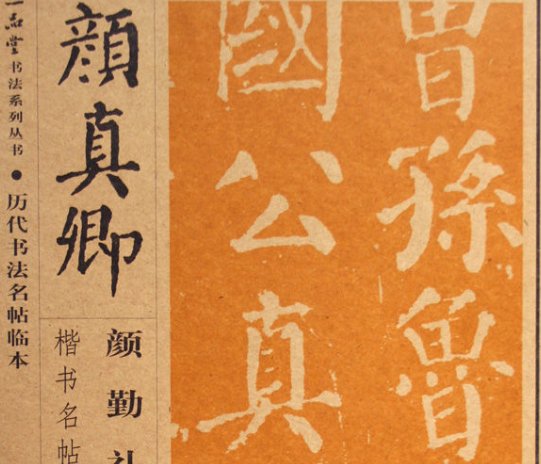 一品堂书法系列丛书●历代书法名帖临本
顔真卿
颜勤礼
楷书名帖
曾孫魯
國公真